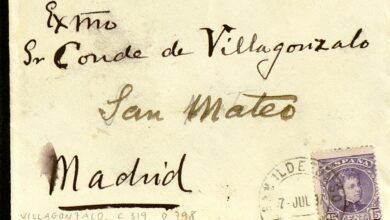 Exmo
Sr Conde de Villagonzalo
San Mateo
Madrid
VILLAGONZALO, C 319 D 798
ILDE
7-JUL
ESPAÑA